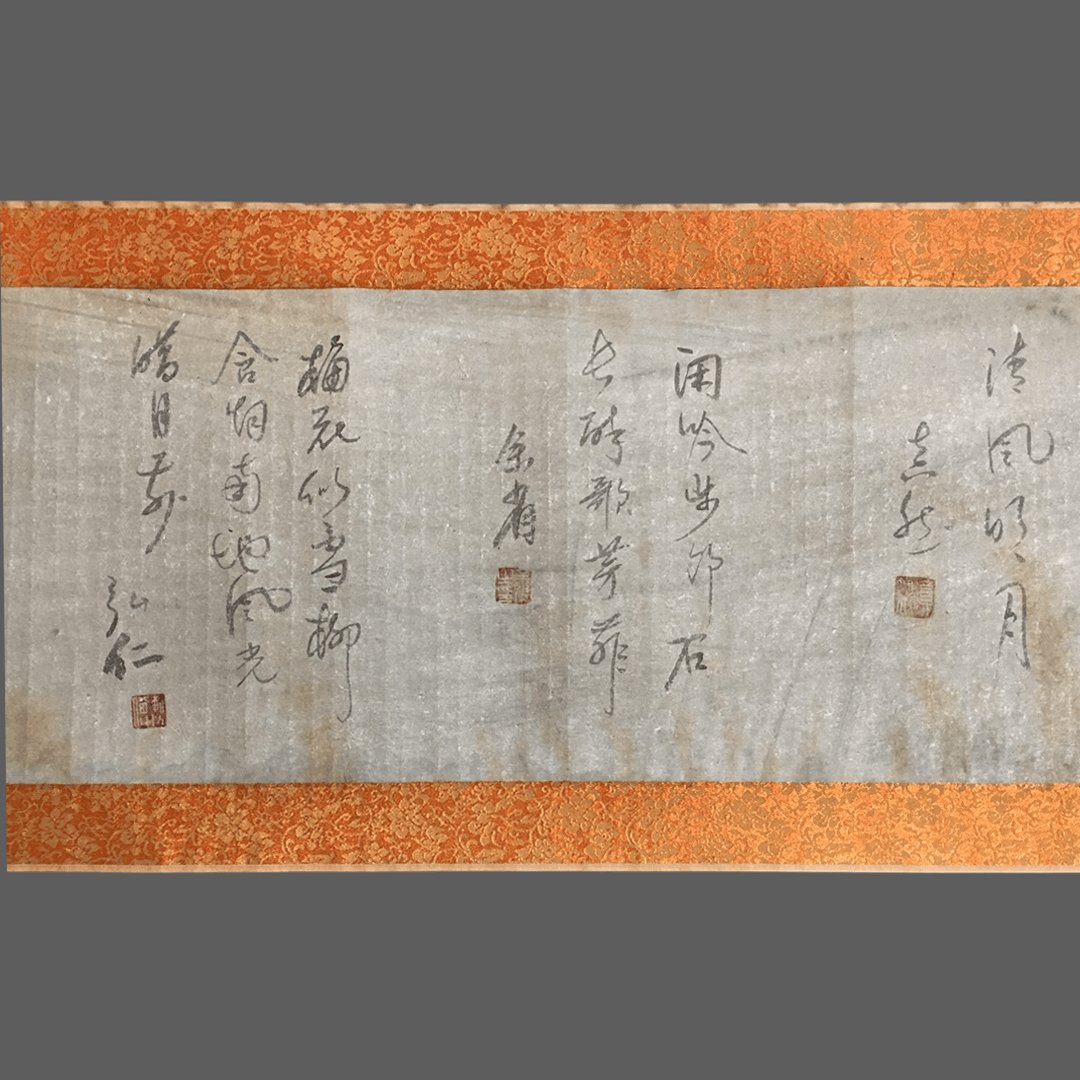 清風明月
真然
閑吟步竹石
長醉歌芳菲
梅花似雪柳
含烟南地風光
臘月前
弘仁